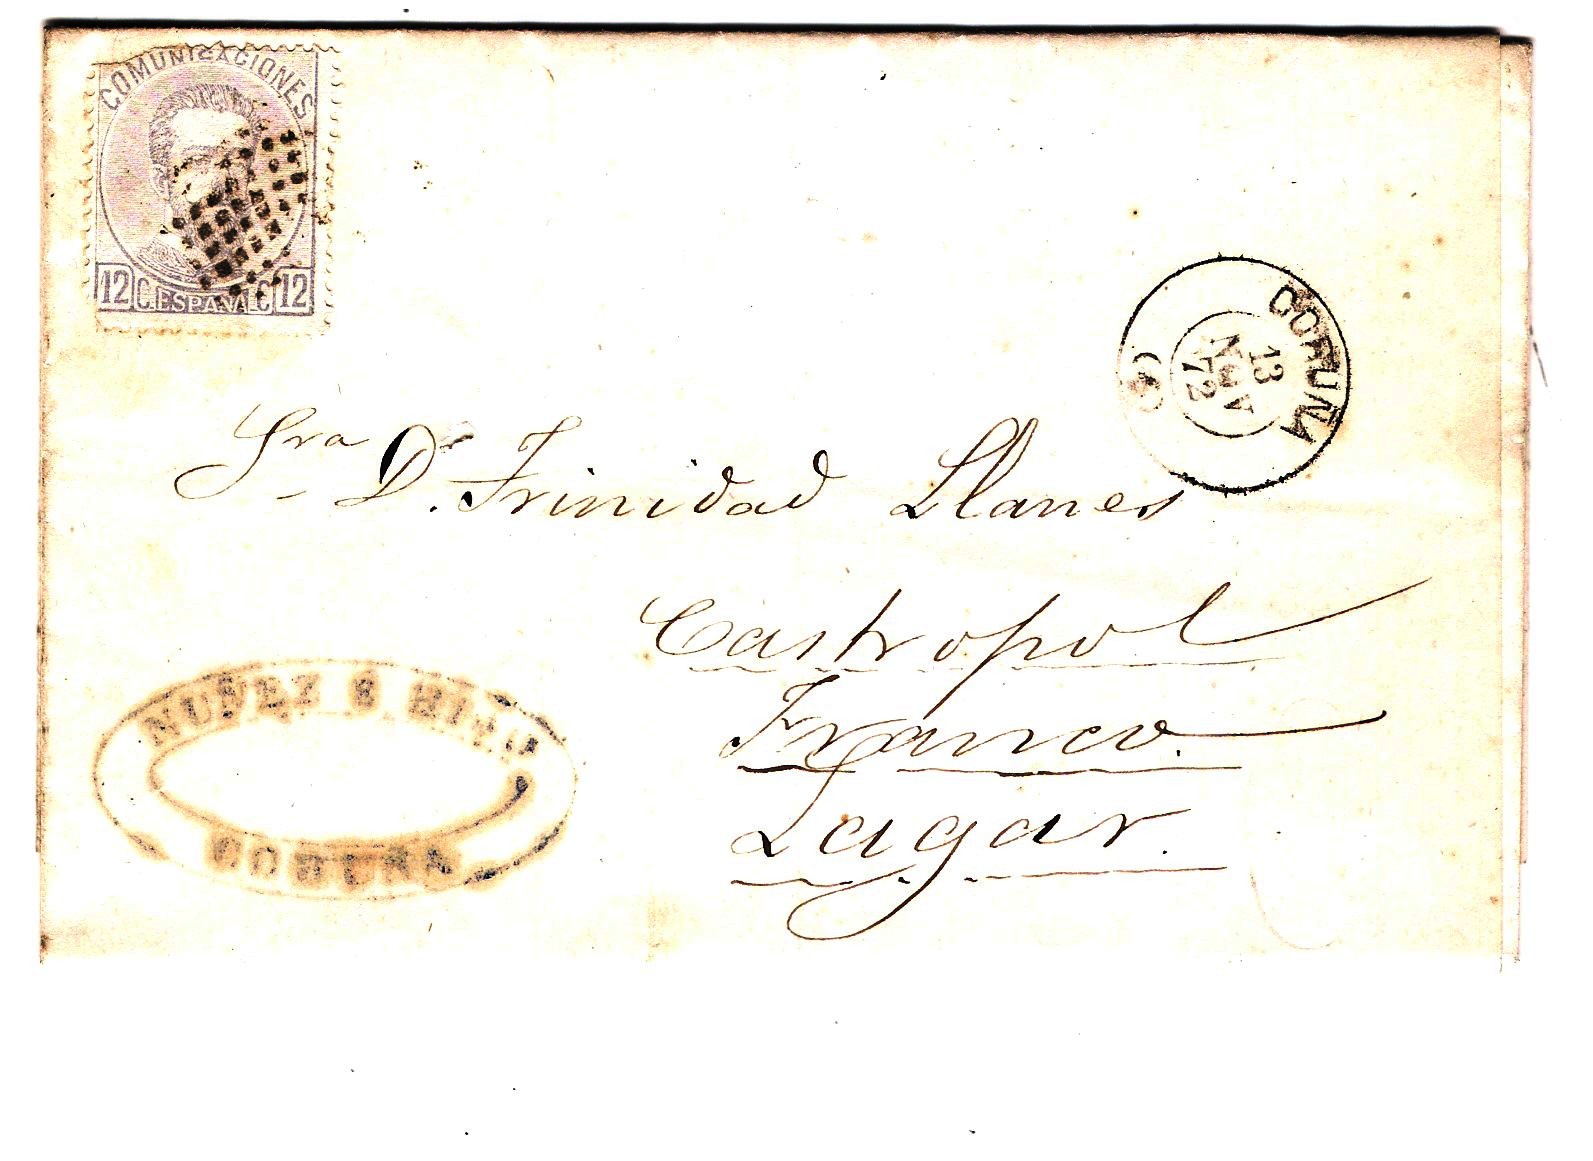 COMUNICACIONES
12 C. ESPAÑA C 12
CORUÑA
13
NOV
72
Sra Da. Trinidad Llanes
Castropol
Franco.
Lagar.
NUÑEZ E HIJO
CORUÑA